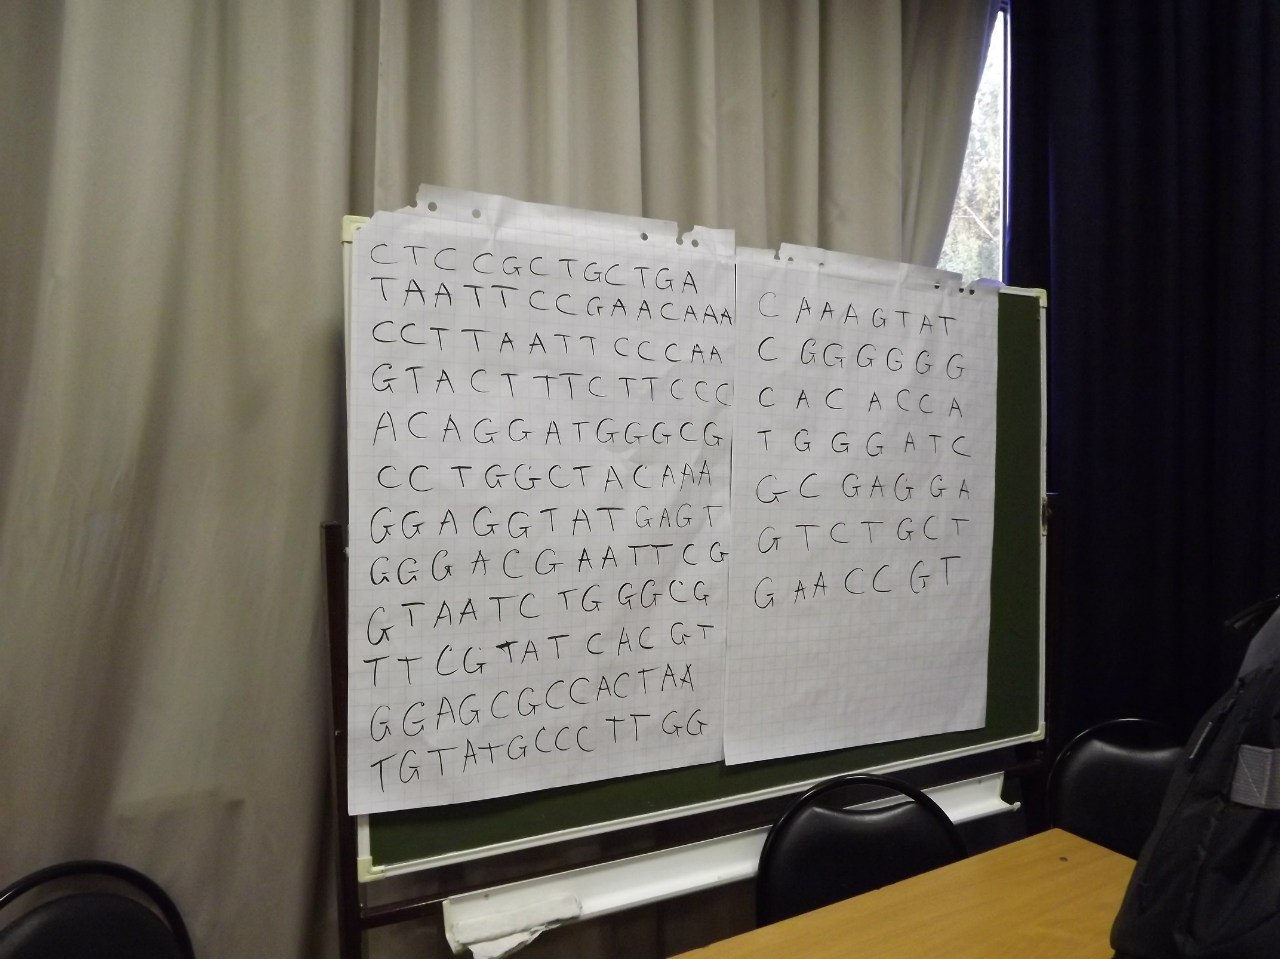 CTCCGCTGCTGA
TAATTCCGAACAAA
CCTTAATTCCCAA
GTACTTTCTTCCC
ACAGGATGGGCG
CCTGGCTACAAA
GGAGGTATGAGT
GGGACGAATTCG
GTAATCTGGGCG
TTCGTATCACGT
GGAGCGCCACTAA
TGTATGCCCTTGG
CAAAGTAT
CGGGGGG
CACACCA
TGGGATC
GCGAGGA
GTCTGCT
GAACCGT